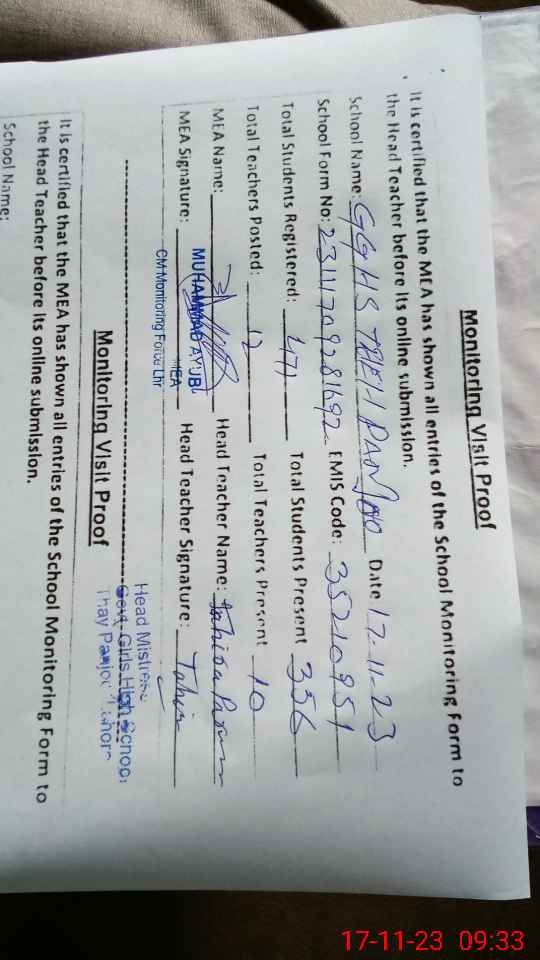 Monitoring Visit Proof
It is certified that the MEA has shown all entries of the School Monitoring Form to
the Head Teacher before its online submission.
School Name: GGHS THEH PANJOO Date 17-11-23
School Form No: EMIS Code: 35210951
Total Students Registered: 471 Total Students Present 356
Total Teachers Posted: 12 Total Teachers Present 10
MEA Name: Head Teacher Name:
MEA Signature: Head Teacher Signature:
MUHAMMAD AYUB
MEA
CM Monitoring Force Lhr
Head Mistress
Govt. Girls High School
Thay Panjoo Lahore
Monitoring Visit Proof
It is certified that the MEA has shown all entries of the School Monitoring Form to
the Head Teacher before its online submission.
School Name:
17-11-23 09:33